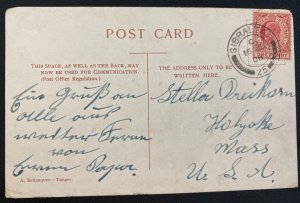 POST CARD
THIS SPACE, AS WELL AS THE BACK, MAY
NOW BE USED FOR COMMUNICATION.
(Post Office Regulation.)
THE ADDRESS ONLY TO BE
WRITTEN HERE.
GIBRALTAR
Ein Gruß an
alle aus
weiter Ferne
von
Eurem Papa.
Stella Dreikorn
Holyoke
Mass
U. S. A.
A. Benzaquen - Tanger.